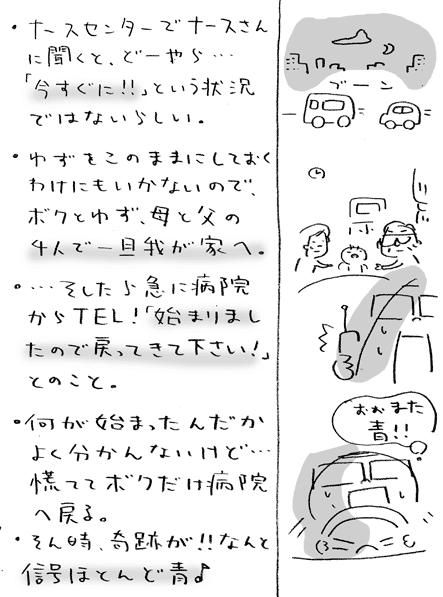 ・ナースセンターでナースさん
に聞くと、どーやら…
「今すぐに!!」という状況
ではないらしい。
・ゆずをこのままにしておく
わけにもいかないので、
ボクとゆず、母と父の
4人で一旦我が家へ。
・…そしたら急に病院
からTEL!「始まりまし
たので戻ってきて下さい!」
とのこと。
・何が始まったんだか
よく分かんないけど…
慌ててボクだけ病院
へ戻る。
・そん時、奇跡が!!なんと
信号ほとんど青♪
ブーン
おぉまた
青!!